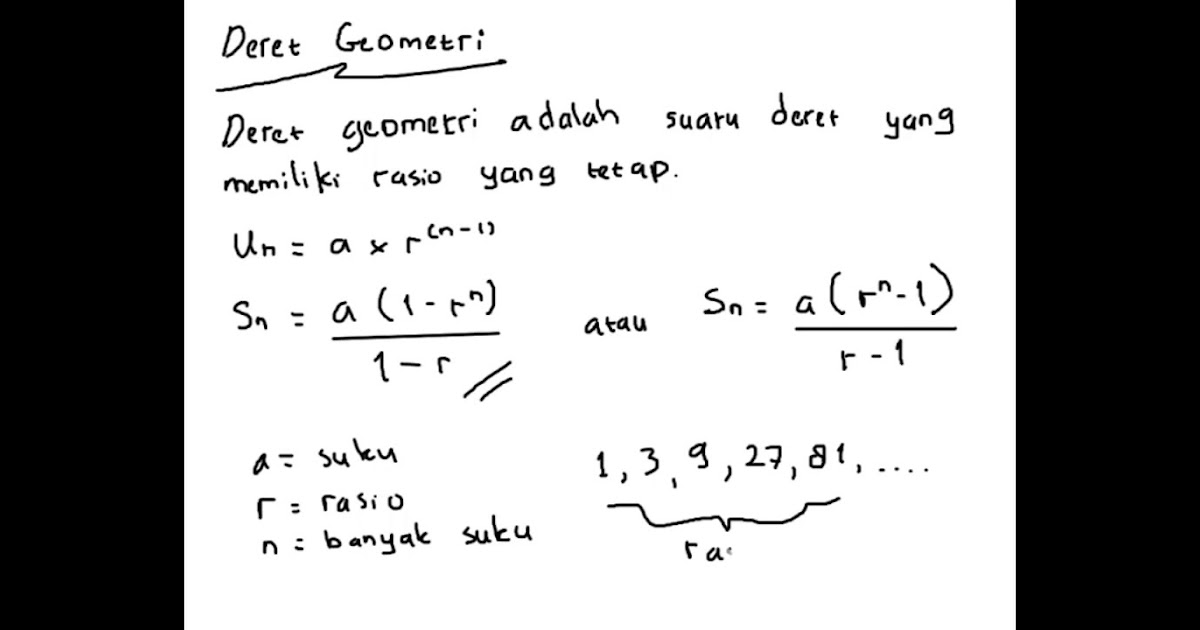 Deret Geometri
Deret geometri adalah suatu deret yang
memiliki rasio yang tetap.
Un = a × r^(n-1)
Sn = a (1 - r^n) / 1 - r atau Sn = a (r^n - 1) / r - 1
a = suku 1, 3, 9, 27, 81, ....
r = rasio
n = banyak suku ra